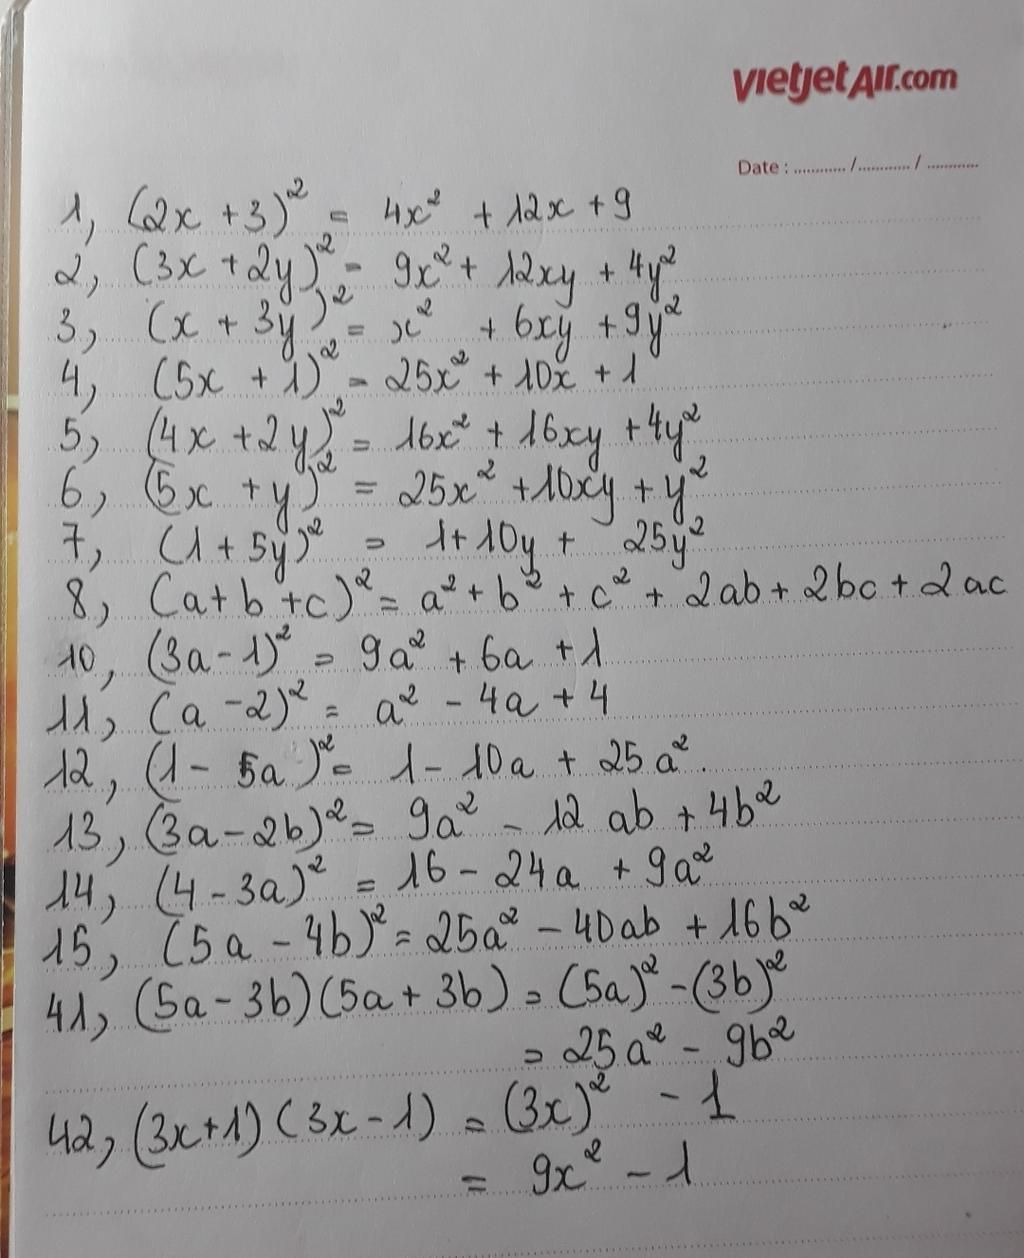 vietjetAir.com
Date : ............ /............ / ............
1, (2x + 3)² = 4x² + 12x + 9
2, (3x + 2y)² = 9x² + 12xy + 4y²
3, (x + 3y)² = x² + 6xy + 9y²
4, (5x + 1)² = 25x² + 10x + 1
5, (4x + 2y)² = 16x² + 16xy + 4y²
6, (5x + y)² = 25x² + 10xy + y²
7, (1 + 5y)² = 1 + 10y + 25y²
8, (a + b + c)² = a² + b² + c² + 2ab + 2bc + 2ac
10, (3a - 1)² = 9a² + 6a + 1
11, (a - 2)² = a² - 4a + 4
12, (1 - 5a)² = 1 - 10a + 25a².
13, (3a - 2b)² = 9a² - 12ab + 4b²
14, (4 - 3a)² = 16 - 24a + 9a²
15, (5a - 4b)² = 25a² - 40ab + 16b²
41, (5a - 3b)(5a + 3b) = (5a)² - (3b)²
= 25a² - 9b²
42, (3x + 1)(3x - 1) = (3x)² - 1
= 9x² - 1